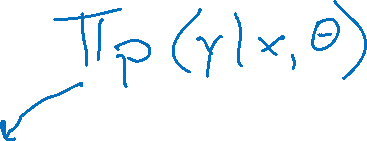 Πp(y|x,θ)